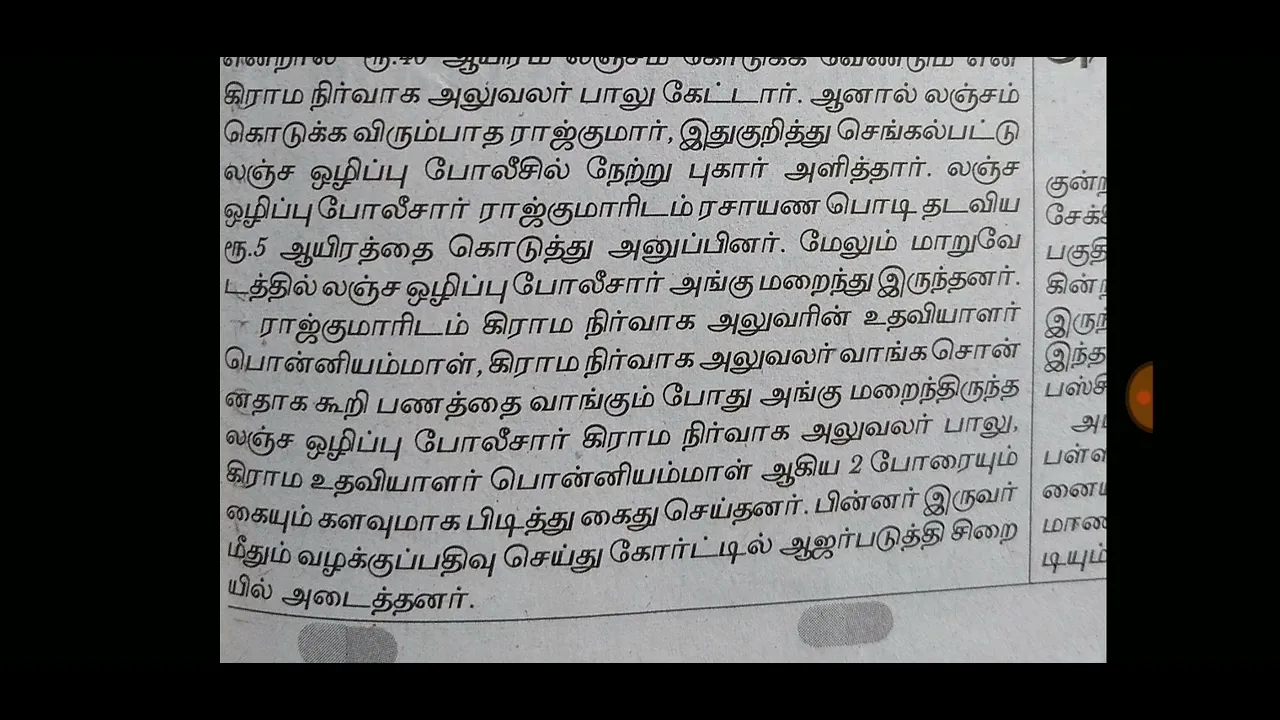 என்றால் ரூ.40 ஆயிரம் லஞ்சம் கொடுக்க வேண்டும் என
கிராம நிர்வாக அலுவலர் பாலு கேட்டார். ஆனால் லஞ்சம்
கொடுக்க விரும்பாத ராஜ்குமார், இதுகுறித்து செங்கல்பட்டு
லஞ்ச ஒழிப்பு போலீசில் நேற்று புகார் அளித்தார். லஞ்ச
ஒழிப்பு போலீசார் ராஜ்குமாரிடம் ரசாயண பொடி தடவிய
ரூ.5 ஆயிரத்தை கொடுத்து அனுப்பினர். மேலும் மாறுவே
டத்தில் லஞ்ச ஒழிப்பு போலீசார் அங்கு மறைந்து இருந்தனர்.
ராஜ்குமாரிடம் கிராம நிர்வாக அலுவரின் உதவியாளர்
பொன்னியம்மாள், கிராம நிர்வாக அலுவலர் வாங்க சொன்
னதாக கூறி பணத்தை வாங்கும் போது அங்கு மறைந்திருந்த
லஞ்ச ஒழிப்பு போலீசார் கிராம நிர்வாக அலுவலர் பாலு,
கிராம உதவியாளர் பொன்னியம்மாள் ஆகிய 2 போரையும்
கையும் களவுமாக பிடித்து கைது செய்தனர். பின்னர் இருவர்
மீதும் வழக்குப்பதிவு செய்து கோர்ட்டில் ஆஜர்படுத்தி சிறை
யில் அடைத்தனர்.
குன்ற
சேக்
பகுதி
கின்ற
இருந்
இந்த
பஸ்சி
அப
பள்ள
னைய
மாண
டியும்